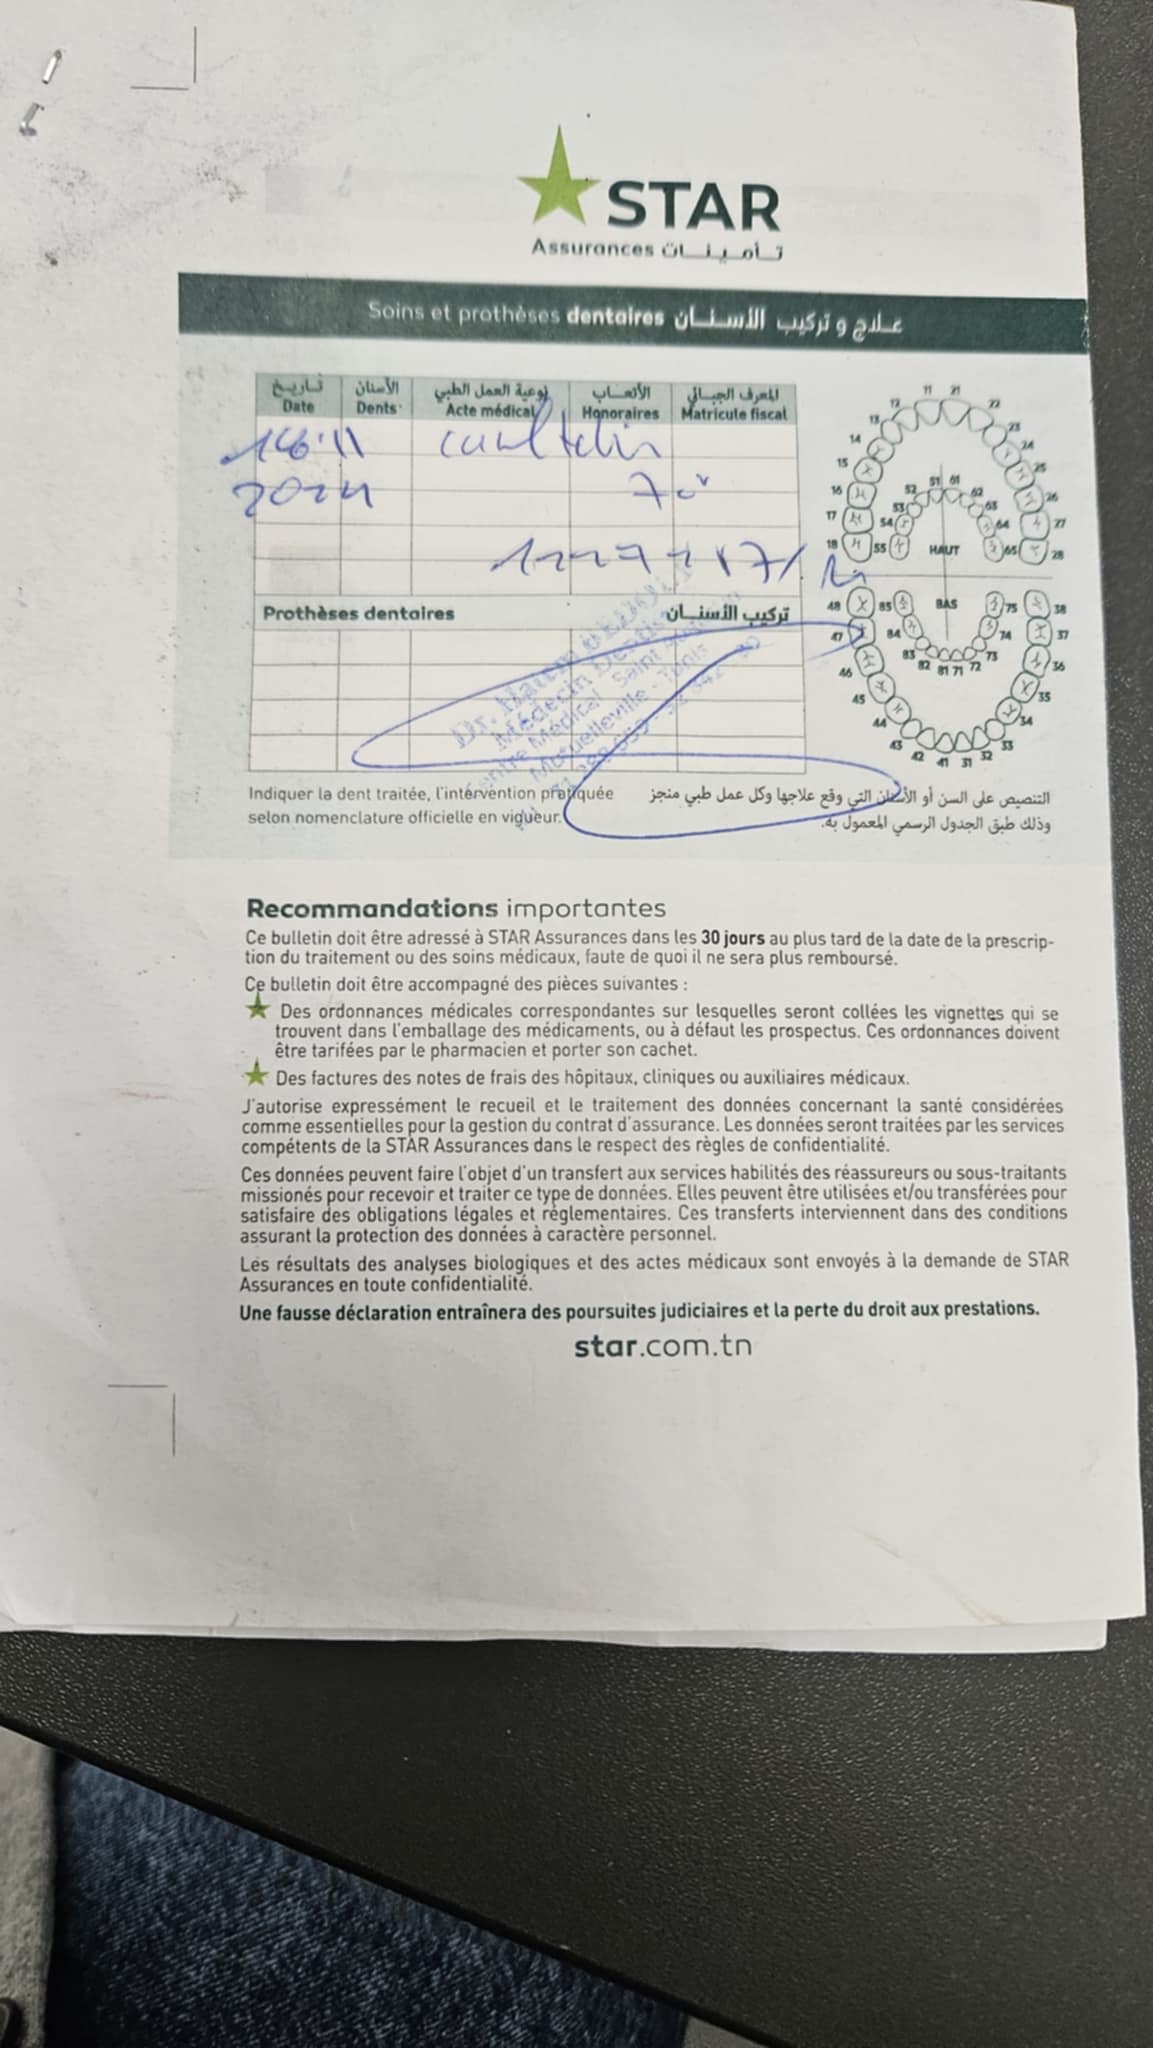 STAR
Assurances تأمينات
Soins et prothèses dentaires علاج و تركيب الأسنان
تاريخ الأسنان نوعية العمل الطبي الأتعاب المعرف الجبائي
Date Dents Acte médical Honoraires Matricule fiscal
2024
Prothèses dentaires تركيب الأسنان
Médecin Dentiste
Centre Médical Saint
Mutuelleville - Tunis
11 21
12 22
13 23
14 24
15 25
16 52 51 61 62 26
17 53 63 27
54 64
18 55 HAUT 65 28
48 85 BAS 75 38
47 84 74 37
46 83 82 81 71 72 73 36
45 35
44 34
43 42 41 31 32 33
Indiquer la dent traitée, l'intervention pratiquée
selon nomenclature officielle en vigueur.
التنصيص على السن أو الأسنان التي وقع علاجها وكل عمل طبي منجز
وذلك طبق الجدول الرسمي المعمول به.
Recommandations importantes
Ce bulletin doit être adressé à STAR Assurances dans les 30 jours au plus tard de la date de la prescrip-
tion du traitement ou des soins médicaux, faute de quoi il ne sera plus remboursé.
Ce bulletin doit être accompagné des pièces suivantes :
Des ordonnances médicales correspondantes sur lesquelles seront collées les vignettes qui se
trouvent dans l'emballage des médicaments, ou à défaut les prospectus. Ces ordonnances doivent
être tarifées par le pharmacien et porter son cachet.
Des factures des notes de frais des hôpitaux, cliniques ou auxiliaires médicaux.
J'autorise expressément le recueil et le traitement des données concernant la santé considérées
comme essentielles pour la gestion du contrat d'assurance. Les données seront traitées par les services
compétents de la STAR Assurances dans le respect des règles de confidentialité.
Ces données peuvent faire l'objet d'un transfert aux services habilités des réassureurs ou sous-traitants
missionés pour recevoir et traiter ce type de données. Elles peuvent être utilisées et/ou transférées pour
satisfaire des obligations légales et réglementaires. Ces transferts interviennent dans des conditions
assurant la protection des données à caractère personnel.
Les résultats des analyses biologiques et des actes médicaux sont envoyés à la demande de STAR
Assurances en toute confidentialité.
Une fausse déclaration entraînera des poursuites judiciaires et la perte du droit aux prestations.
star.com.tn